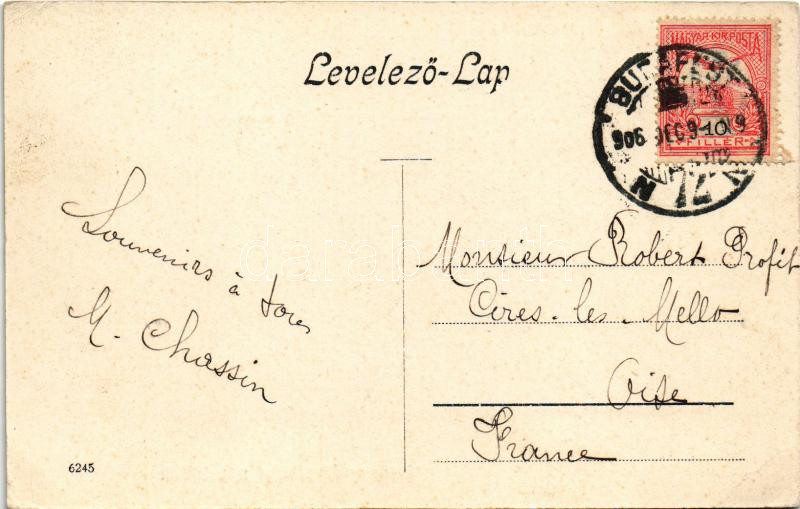 Levelező-Lap
MAGYAR KIR. POSTA
10
FILLÉR
BUDAPEST
906 DEC 9
Souvenirs à tous
M. Chassin
Monsieur Robert Profit
Cires-les-Mello
Oise
France
6245